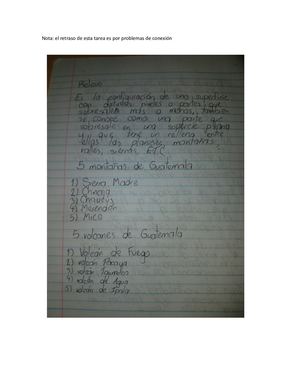 Nota: el retraso de esta tarea es por problemas de conexión
Relieve
Es la configuración de una superficie
con distintos niveles o partes que
sobresalen más o menos, también
se conoce como una parte que
sobresale en una superficie plana
y que tiene un relieve entre
ellas las planicies, montañas
valles, sierras ETC.
5 montañas de Guatemala
1) Sierra Madre
2)
3)
4) Merendón
5) Mico
5 volcanes de Guatemala
1) Volcán de Fuego
2) volcán Pacaya
3) volcán
4) volcán de Agua
5) volcán de Ipala